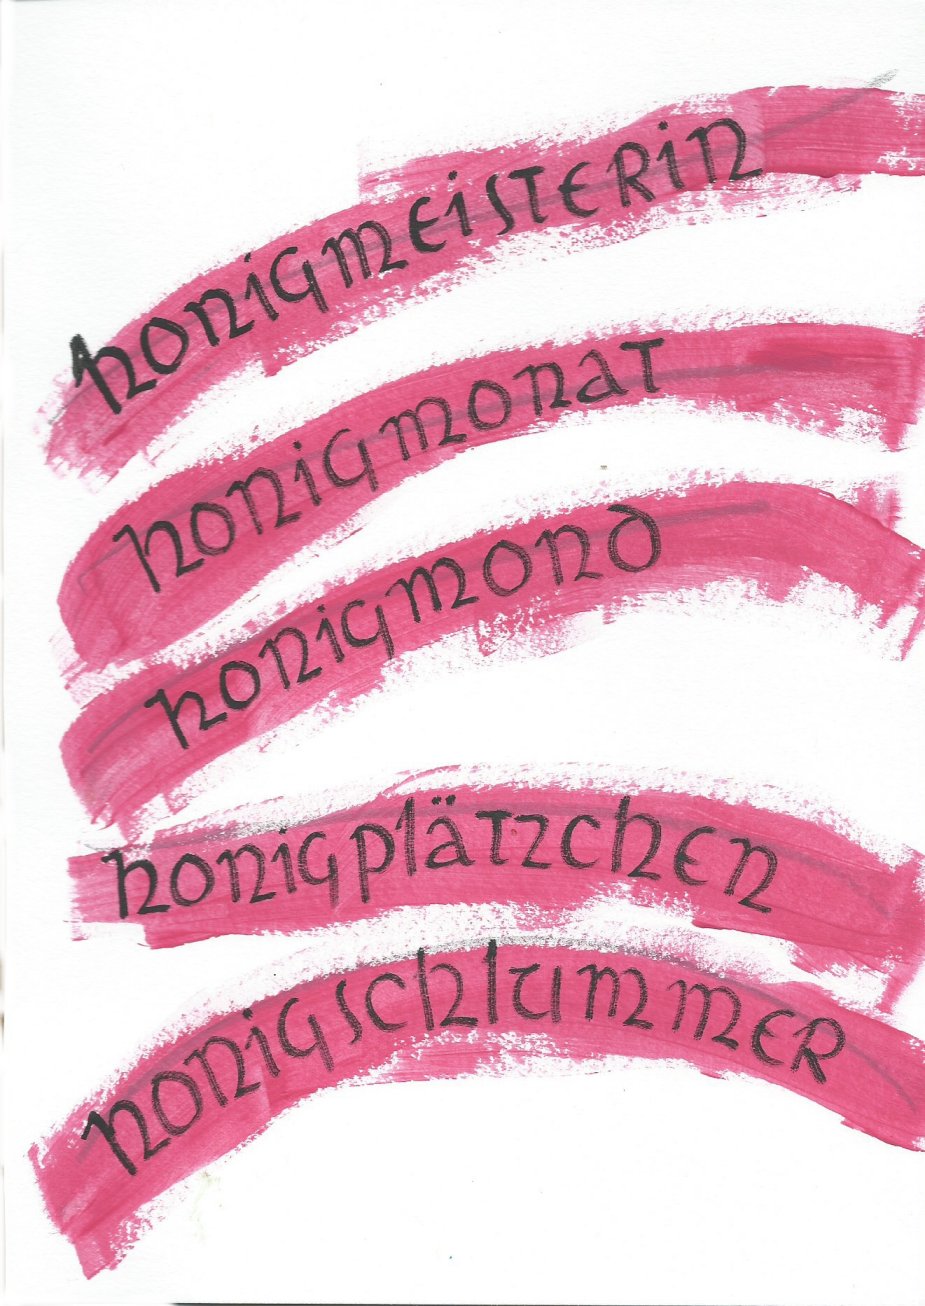 honigmeisterin
honigmonat
honigmond
honigplätzchen
honigschlummer